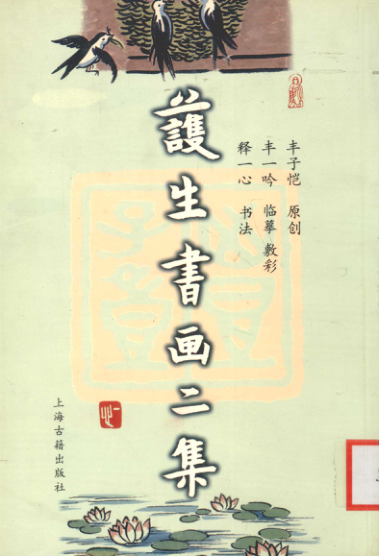 丰子恺 原创
丰一吟 临摹 敷彩
释一心 书法
護生書画二集
上海古籍出版社